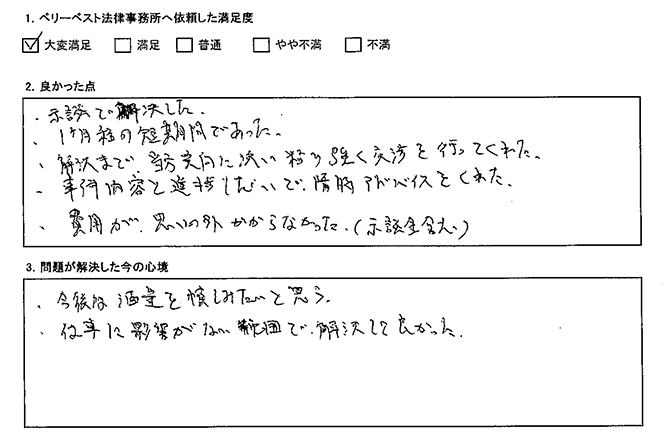 1. ベリーベスト法律事務所へ依頼した満足度
大変満足 満足 普通 やや不満 不満
2. 良かった点
・示談で解決した。
・1ヶ月程の短期間であった。
・解決まで当方意向に沿い粘り強く交渉を行ってくれた。
・事件内容と進捗しだいで、随時アドバイスをくれた。
・費用が、思いの外かからなかった。(示談金含む)
3. 問題が解決した今の心境
・今後は酒量を慎しみたいと思う。
・仕事に影響がない範囲で、解決して良かった。